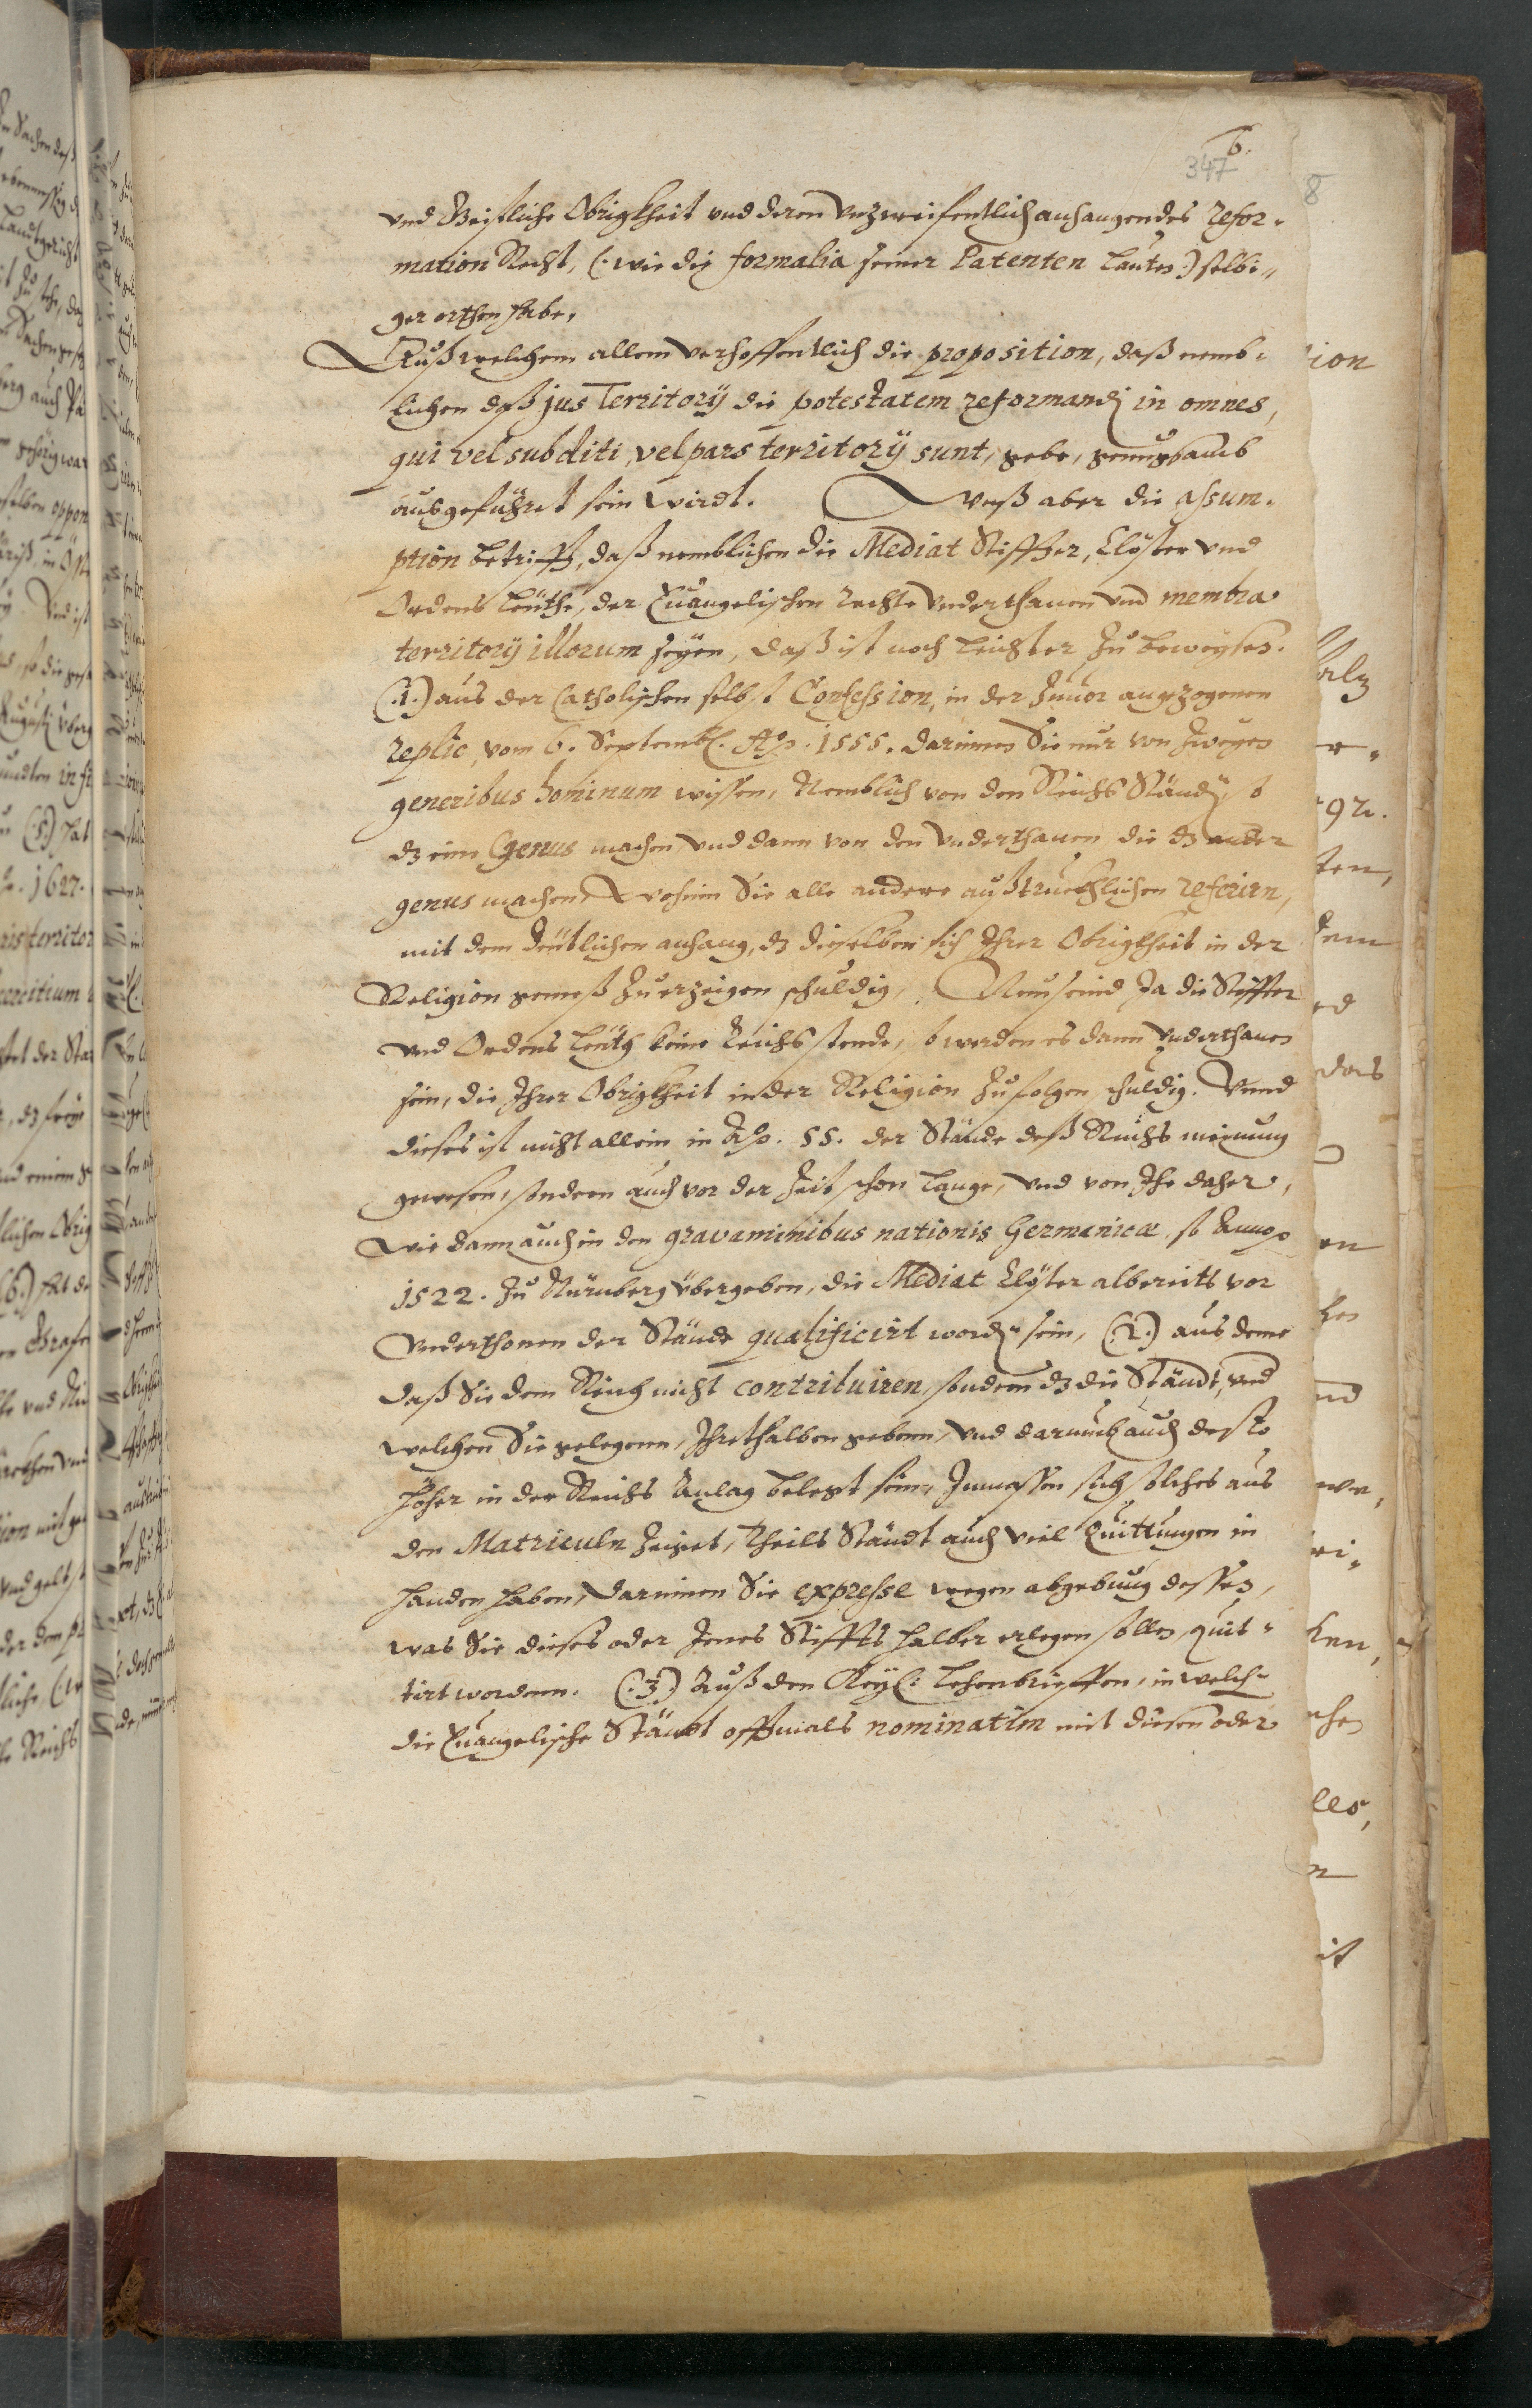 6.
347
8
vnd Geistliche Obrigkheit vnd deren vnzweifentlich anhangendes refor-
mation Recht, (: wie die formalia seiner Patenten lauten :) selbi-
ger orthen habe,
Auß welchem allem verhoffentlich die proposition, daß nemb-
lichen daß jus Territorÿ die potestatem reformandi in omnes,
qui vel subditi, vel pars territorÿ sunt, gebe, genugsamb
ausgeführet sein wirdt. Waß aber die assum-
ption betrifft, daß nemblichen die Mediat Stiffter, Clöster vnd
Ordens Leüthe, der Euangelischen rechte Vnderthanen vnd membra
territorÿ illorum seÿen, daß ist noch leichter zu beweÿsen.
(.1.) aus der Catholischen selbst Confession, in der zuuor angezogenen
replic, vom 6. Septemb. Ao. 1555. darinnen Sie nur von zweÿen
generibus hominum wissen, Nemblich von den Reichs Ständen, so
dz eine Genus machen vnd dann von den Vnderthanen die dz ander
genus machen, wohinn Sie alle andere außtruckhlichen referirn,
mit dem deütlichen anhang, dz dieselben sich Ihrer Obrigkheit in der
Religion gemeß zu erzeigen schuldig, Nun seind Ja die Stiffter
vnd Ordens Leüth keine Reichs stende, so werden es dann Vnderthanen
sein, die Ihrer Obrigkheit in der Religion zu folgen schuldig. Vnnd
dieses ist nicht allein in Ao. 55. der Stände deß Reichs meinung
gewesen, sondern auch vor der Zeit schon lange, vnd von Ihe daher,
wie dann auch in den gravaminibus nationis Germanicæ, so Anno
1522. zu Nürnberg übergeben, die Mediat Clöster albereits vor
Vnderthonen der Stände qualificirt worden sein, (.2.) aus deme
daß Sie dem Reich nicht contribuiren, sondern dz die Ständt, vnd
welchen Sie gelegenn, Ihrethalben gebenn, vnd darumb auch desto
höher in der Reichs Anlag belegt sein, Inmassen sich solches aus
den Matriculn zeiget, Theils Ständt auch viel Quittungen in
handen haben, darinnen Sie expresse wegen abgebung dessen,
was Sie dieses oder Jenes Stiffts halber erlegen sollen, quit-
tirt wordenn. (.3.) Auß den Keÿs: Lehenbrieffen, in welchen
die Euangelische Ständt offtmals nominatim mit diesen oder